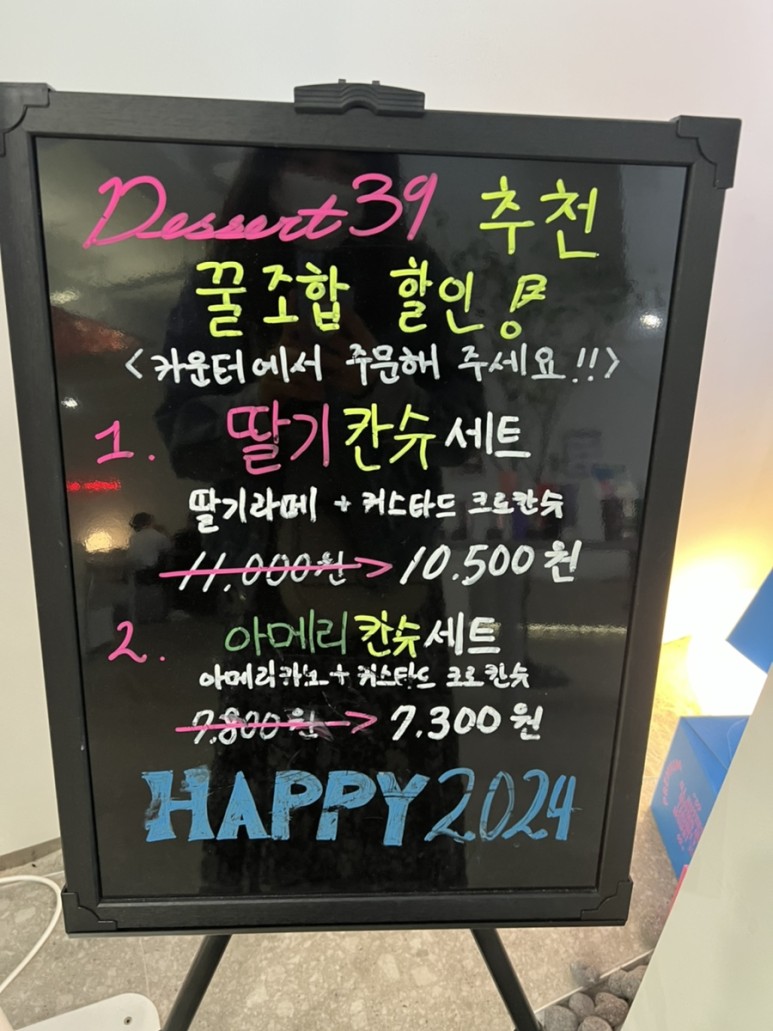 Dessert39 추천
꿀조합 할인중
<카운터에서 주문해 주세요!!>
1. 딸기칸슈세트
딸기라떼 + 커스타드 크로칸슈
11,000원 > 10.500원
2. 아메리칸슈세트
아메리카노+커스타드 크로칸슈
7.800원 > 7.300원
HAPPY 2024